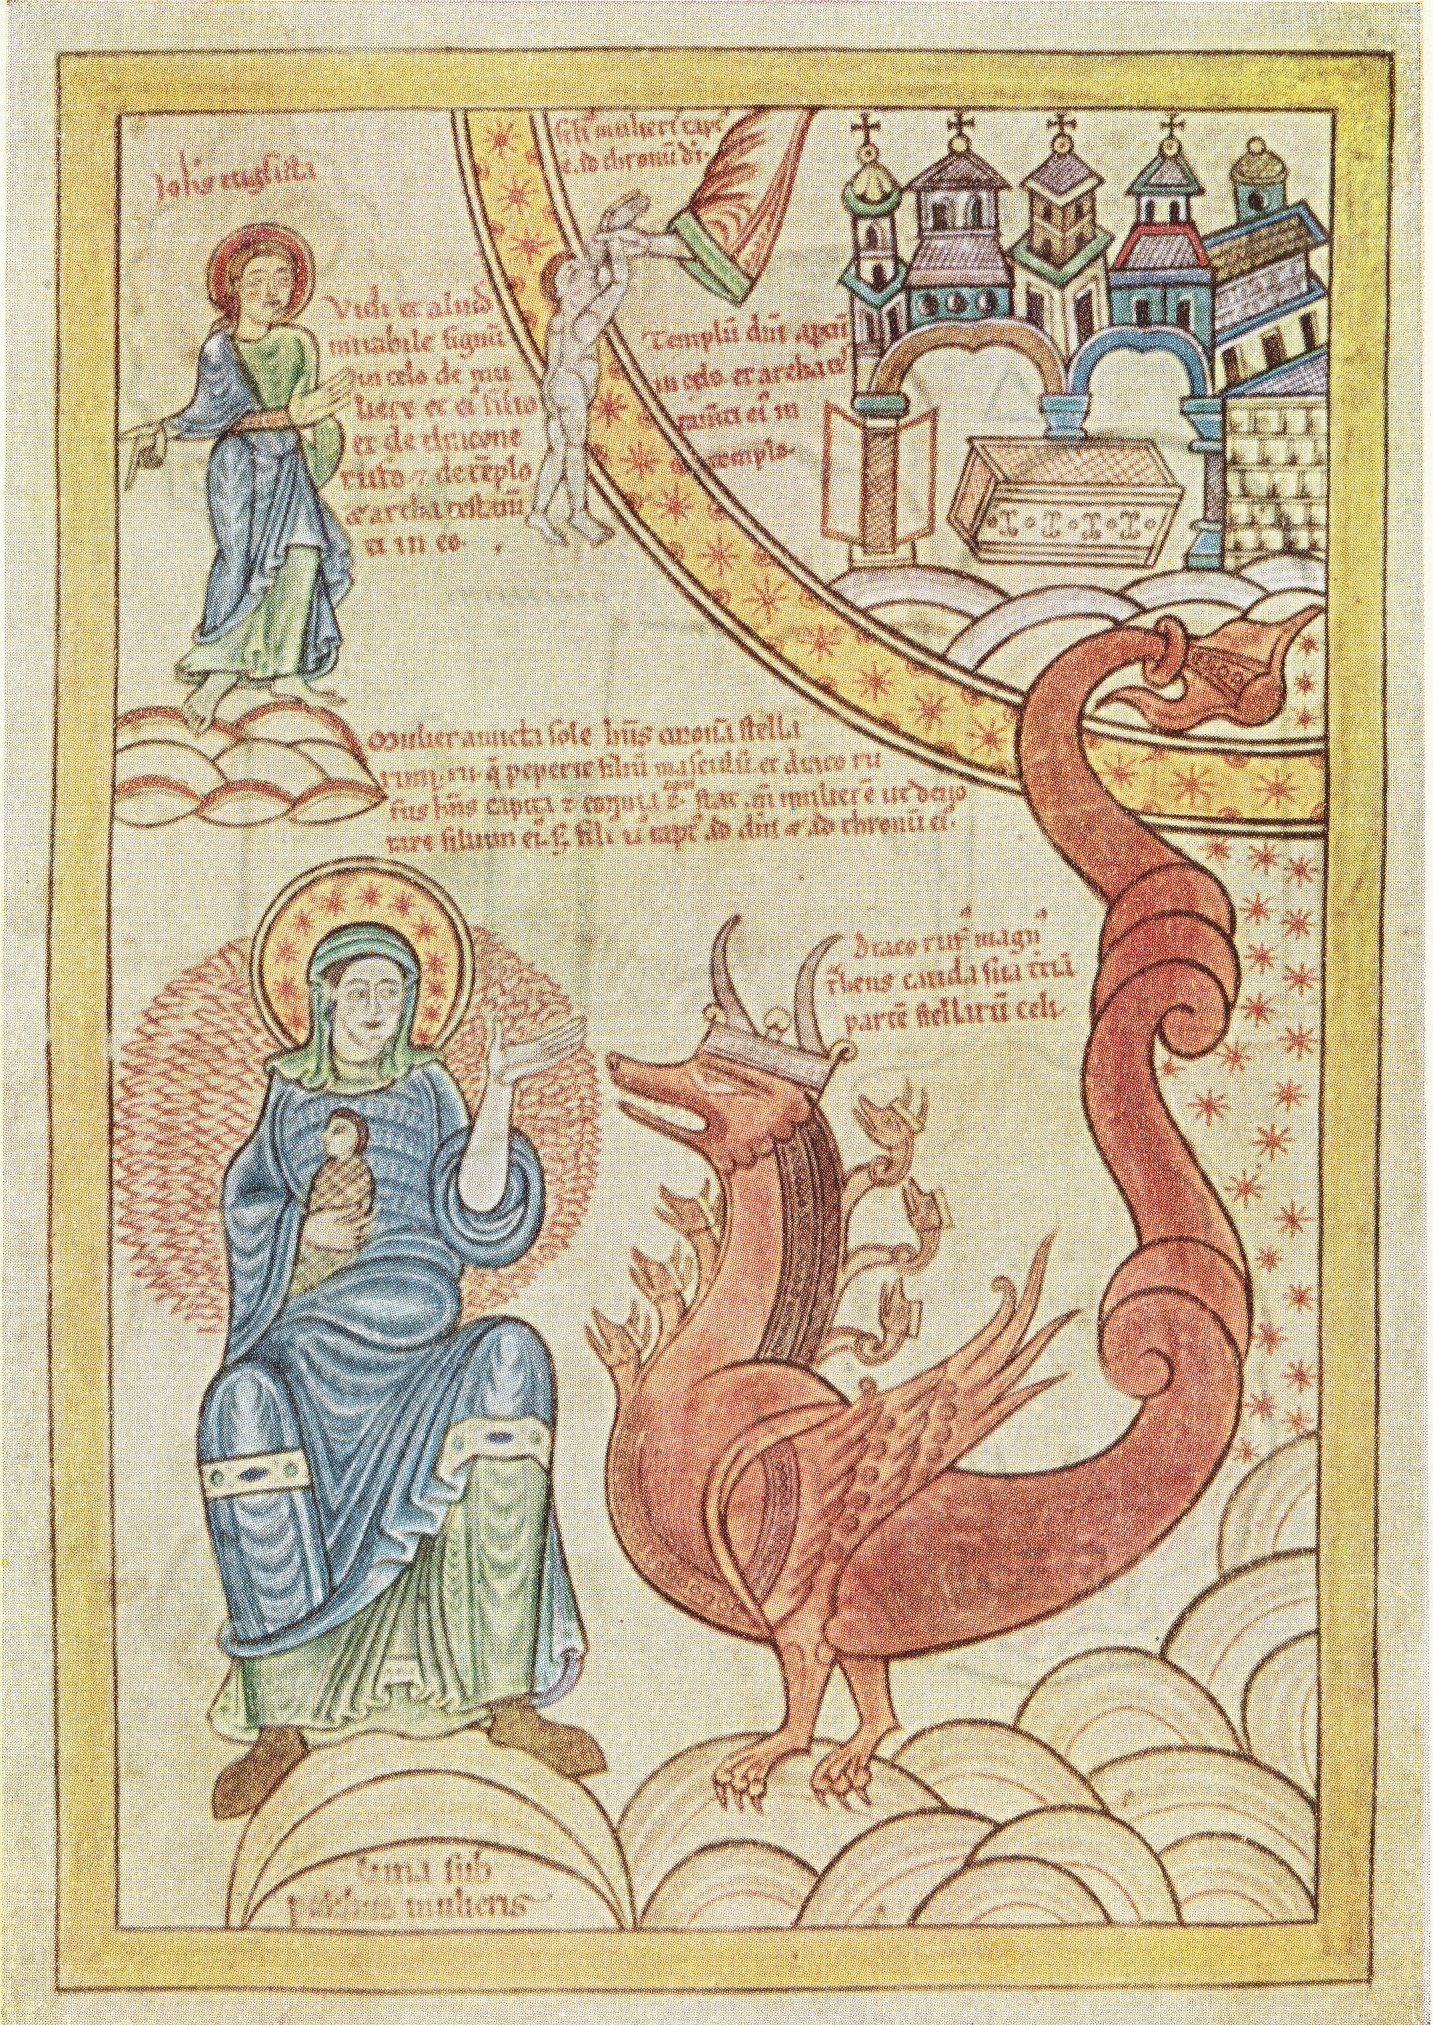 Ioh̄s eug̅lista
Vidi et aliud
mirabile signū
in celo de mu
liere et ei filio
et de dracone
rufo ⁊ de tēplo
et archa testam̄
ti in eo.
filī mulieri rapt᷒
ē. ad thronū dī.
Templū dn̄i aptū
in celo et archa
in
templo.
Mulier amicta sole hn̄s coronā stella
rum. xii. q̄ peperit filiū masculū. et draco ru
fus hn̄s capita ⁊ cornua stat. mulierē ut deuo
raret filium ei. filī rapt᷒ ad dn̄m et ad thronū ei᷒.
Draco ruf᷒ magn᷒
t̄hens cauda sua t̄ciā
partē stellarū celi.
Luna sub
pedibus mulieris